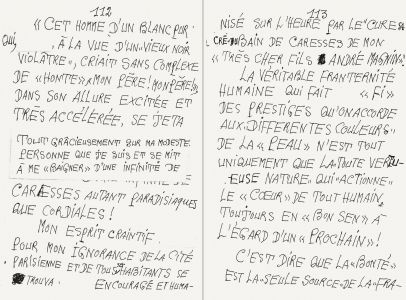 112
« CET HOMME D'UN BLANC PUR
QUI, À LA VUE D'UN « VIEUX NOIR
VIOLÂTRE », CRIAIT SANS COMPLEXE
DE « HONTE » « MON PÈRE ! MON PÈRE »
DANS SON ALLURE EXCITÉE ET
TRÈS ACCÉLÉRÉE, SE JETA
TOUT GRACIEUSEMENT SUR MA MODESTE
PERSONNE QUE JE SUIS ET SE MIT
À ME « BAIGNER » D'UNE INFINITÉ DE
CARESSES AUTANT PARADISIAQUES
QUE CORDIALES !
MON ESPRIT CRAINTIF
POUR MON IGNORANCE DE LA CITÉ
PARISIENNE ET DE TOUS HABITANTS SE
TROUVA ENCOURAGÉ ET HUMA-
113
NISÉ SUR L'HEURE PAR LE "CURE
BAIN DE CARESSES DE MON
« TRÈS CHER FILS ANDRÉ MAGNIN ».
LA VÉRITABLE FRANTERNITÉ
HUMAINE QUI FAIT « FI »
DES PRESTIGES QU'ON ACCORDE
AUX « DIFFÉRENTES COULEURS »
DE LA « PEAU » N'EST TOUT
UNIQUEMENT QUE LA TOUTE VERTU-
EUSE NATURE « QUI « ACTIONNE »
LE « CŒUR » DE TOUT HUMAIN,
TOUJOURS EN « BON SEN » À
L'ÉGARD D'UN « PROCHAIN » !
C'EST DIRE QUE LA « BONTÉ »
EST LA « SEULE SOURCE » DE LA « FRA-